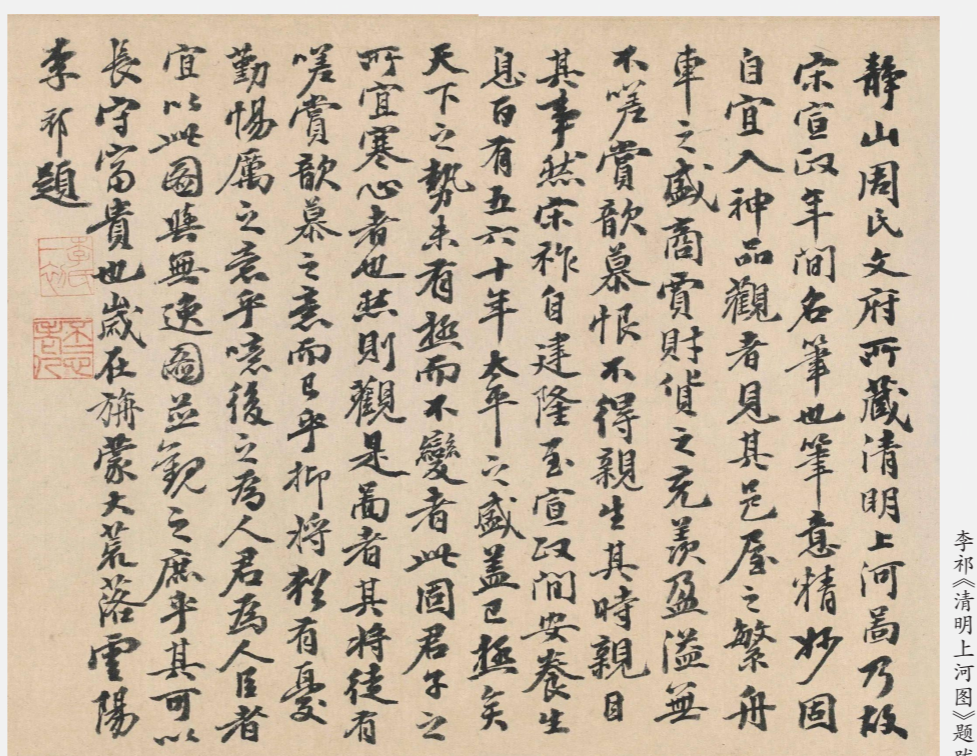 靜山周氏文府所藏清明上河啚乃故
宋宣政年間名筆也筆意精妙固
自宜入神品觀者見其邑屋之繁舟
車之盛商賈財貨之充羨盈溢無
不嗟賞歆慕恨不得親生其時親目
其事然宋祚自建隆至宣政間安養生
息百有五六十年太平之盛盖已極矣
天下之勢未有極而不變者此固君子之
所宜寒心者也然則觀是啚者其將徒有
嗟賞歆慕之意而已乎抑將猶有憂
勤惕厲之意乎噫後之為人君為人臣者
宜以此圖與無逸圖並觀之庶乎其可以
長守富貴也歲在旃蒙大荒落雲陽
李祁題
李氏一初
李祁《清明上河图》题